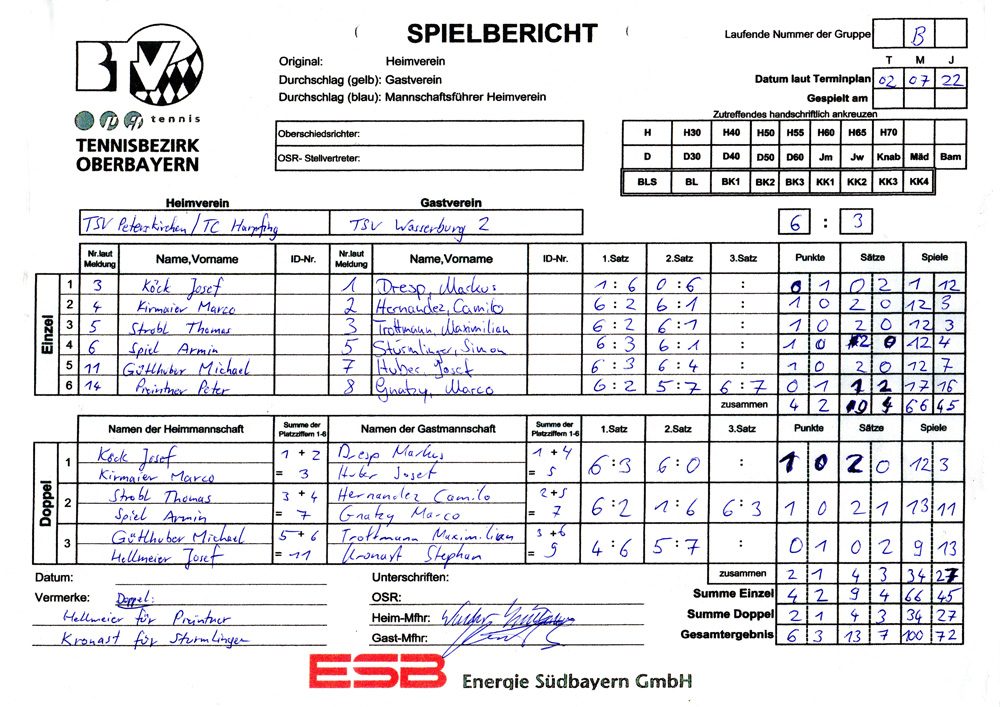 SPIELBERICHT
Original: Heimverein
Durchschlag (gelb): Gastverein
Durchschlag (blau): Mannschaftsführer Heimverein
BTV
tennis
TENNISBEZIRK
OBERBAYERN
Laufende Nummer der Gruppe B
T M J
Datum laut Terminplan 02 07 22
Gespielt am
Zutreffendes handschriftlich ankreuzen
H H30 H40 H50 H55 H60 H65 H70
D D30 D40 D50 D60 Jm Jw Knab Mäd Bam
BLS BL BK1 BK2 BK3 KK1 KK2 KK3 KK4
Oberschiedsrichter:
OSR- Stellvertreter:
Heimverein Gastverein
TSV Peterskirchen/TC Harpfing TSV Wasserburg 2 6 : 3
Nr.laut Meldung Name,Vorname ID-Nr. Nr.laut Meldung Name,Vorname ID-Nr. 1.Satz 2.Satz 3.Satz Punkte Sätze Spiele
Einzel
1 3 Köck Josef 1 Dresp, Markus 1 : 6 0 : 6 : 0 1 0 2 1 12
2 4 Kirmaier Marco 2 Hernandez, Camilo 6 : 2 6 : 1 : 1 0 2 0 12 3
3 5 Strobl Thomas 3 Trottmann, Maximilian 6 : 2 6 : 1 : 1 0 2 0 12 3
4 6 Spiel Armin 5 Sturmlinger, Simon 6 : 3 6 : 1 : 1 0 2 0 12 4
5 11 Gütlhuber Michael 7 Huber, Josef 6 : 3 6 : 4 : 1 0 2 0 12 7
6 14 Preintner Peter 8 Gnatzy, Marco 6 : 2 5 : 7 6 : 7 0 1 1 2 17 16
zusammen 4 2 4 66 45
Namen der Heimmannschaft Summe der Platzziffern 1-6 Namen der Gastmannschaft Summe der Platzziffern 1-6 1.Satz 2.Satz 3.Satz Punkte Sätze Spiele
Doppel
1 Köck Josef 1 + 2 Dresp Markus 1 + 4 6 : 3 6 : 0 : 1 0 2 0 12 3
Kirmaier Marco = 3 Huber Josef = 5
2 Strobl Thomas 3 + 4 Hernandez Camilo 2 + 5 6 : 2 1 : 6 6 : 3 1 0 2 1 13 11
Spiel Armin = 7 Gnatzy Marco = 7
3 Gütlhuber Michael 5 + 6 Trottmann Maximilian 3 + 6 4 : 6 5 : 7 : 0 1 0 2 9 13
Hellmeier Josef = 11 Kronast Stephan = 9
zusammen 2 1 4 3 34 27
Datum: Unterschriften:
Vermerke: Doppel: OSR: Summe Einzel 4 2 9 4 66 45
Hellmeier für Preintner Heim-Mfhr: Summe Doppel 2 1 4 3 34 27
Kronast für Sturmlinger Gast-Mfhr: Gesamtergebnis 6 3 13 7 100 72
ESB Energie Südbayern GmbH